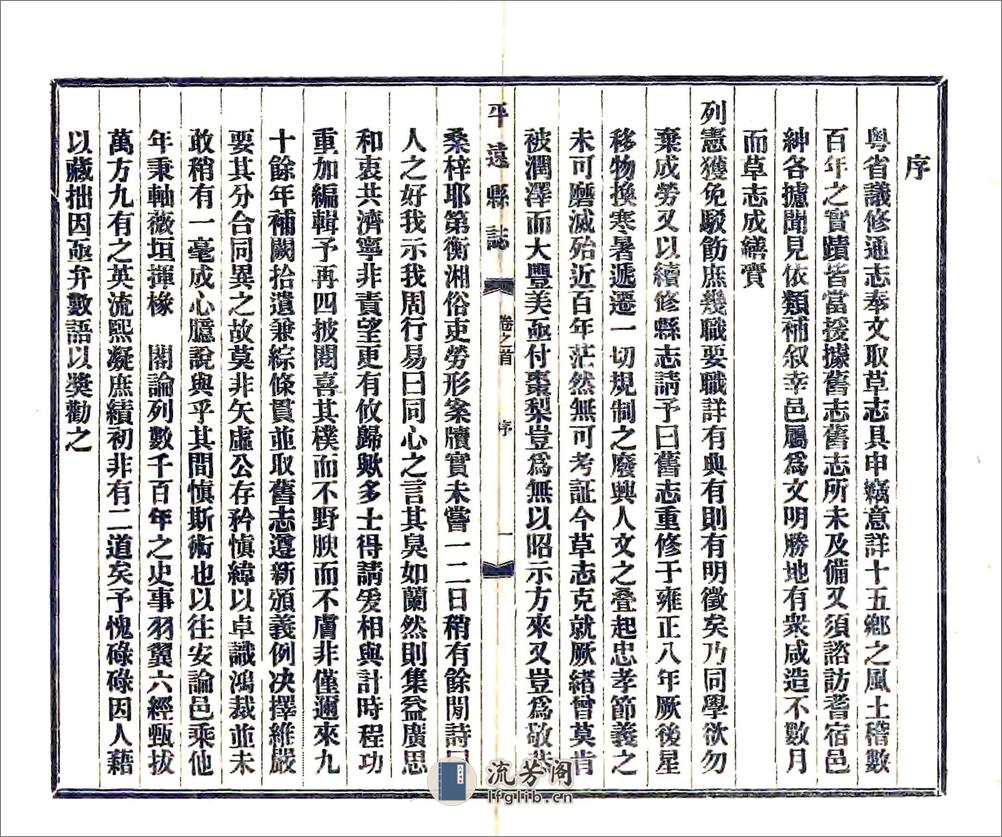 序
粤省議修通志奉文取草志具申竊意詳十五鄉之風土稽數
百年之實蹟皆當援據舊志舊志所未及備又須諮訪耆宿邑
紳各攄聞見依類補叙幸邑屬爲文明勝地有衆咸造不數月
而草志成繕賫
列憲獲免駁飭庶幾職要職詳有典有則有明徵矣乃同學欲勿
棄成勞又以續修縣志請予曰舊志重修于雍正八年厥後星
移物換寒暑遞遷一切規制之廢興人文之叠起忠孝節義之
未可磨滅殆近百年茫然無可考証今草志克就厥緒曾莫肯
被潤澤而大豐美亟付棗梨豈爲無以昭示方來又豈爲敬恭
平遠縣誌
卷之首
序
一
桑梓耶第衡湘俗吏勞形案牘實未嘗一二日稍有餘閒詩曰
人之好我示我周行易曰同心之言其臭如蘭然則集益廣思
和衷共濟寧非責望更有攸歸歟多士得請爰相與計時程功
重加編輯予再四披閱喜其樸而不野腴而不膚非僅邇來九
十餘年補闕拾遺兼綜條貫並取舊志遵新頒義例决擇維嚴
要其分合同異之故莫非矢虛公存矜慎緯以卓識鴻裁並未
敢稍有一毫成心臆說與乎其間慎斯術也以往安論邑乘他
年秉軸薇垣揮椽 閣論列數千百年之史事羽翼六經甄拔
萬方九有之英流熙凝庶績初非有二道矣予愧碌碌因人藉
以藏拙因亟弁數語以獎勸之
流芳阁
lfglib.cn